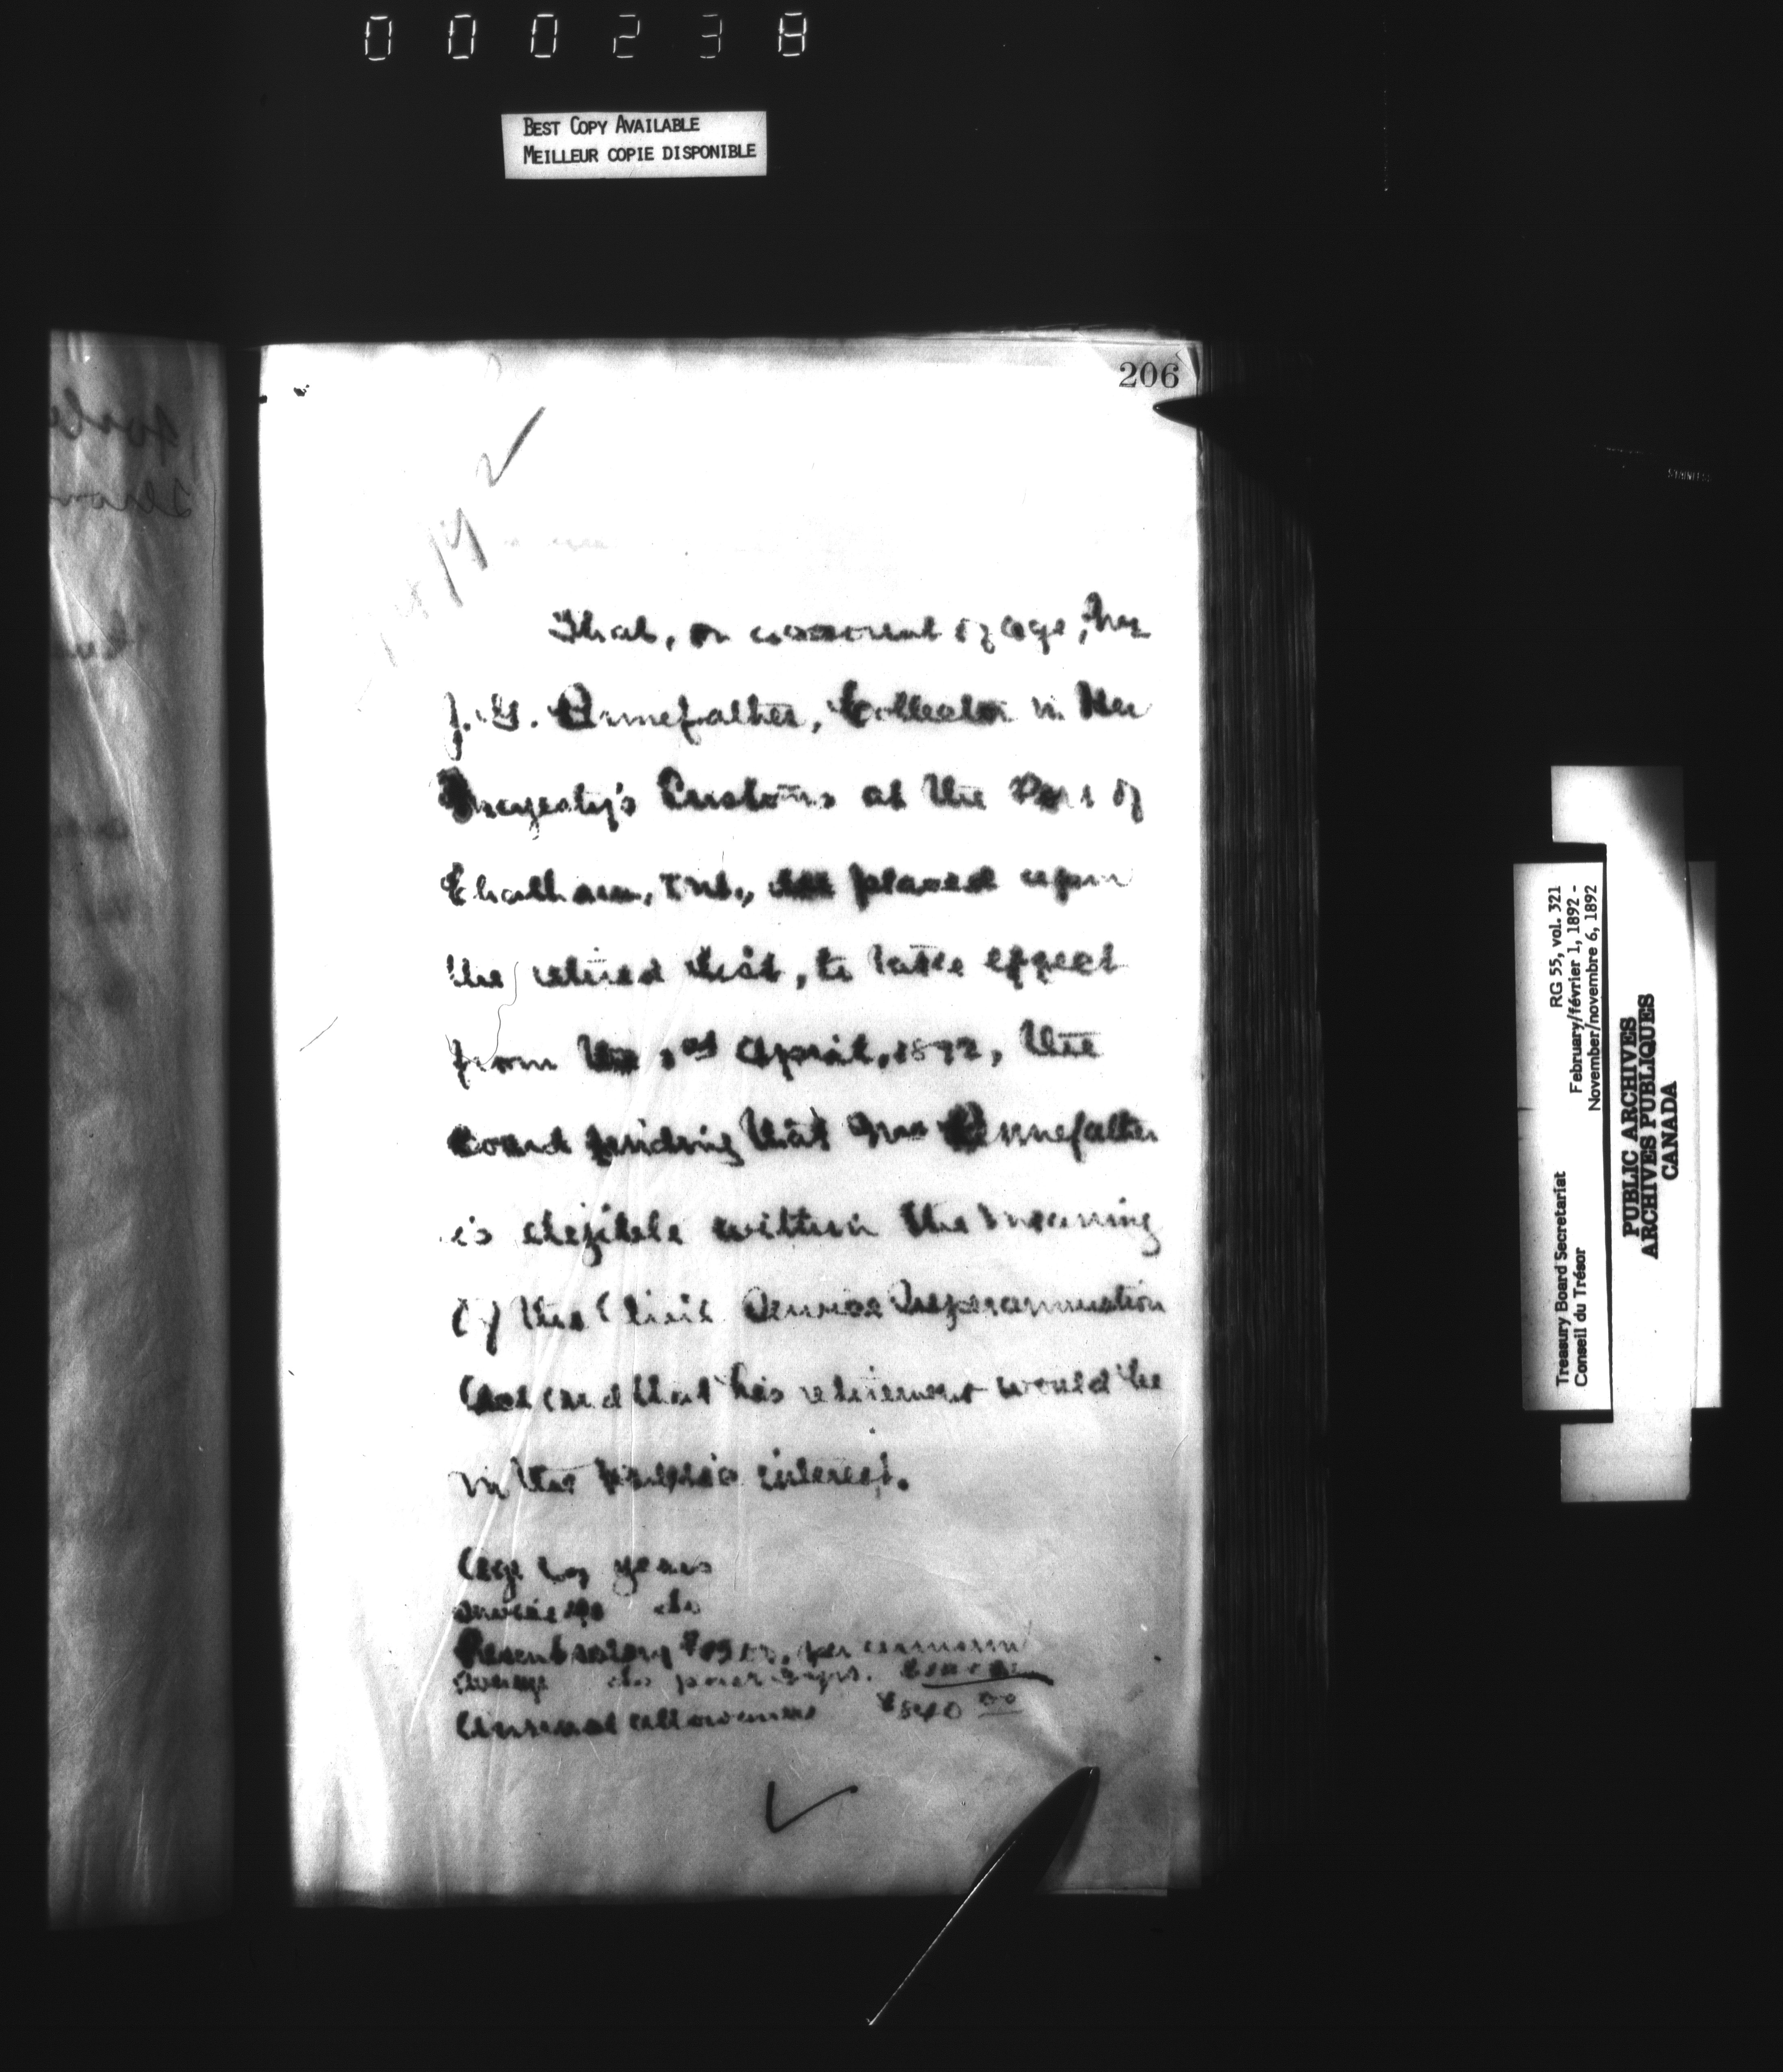 000238
BEST COPY AVAILABLE
MEILLEUR COPIE DISPONIBLE
206
That, on account of age, Mr
J. G. Pennefather, Collector in Her
Majesty's Customs at the Port of
Chatham, Ont., be placed upon
the retired list, to take effect
from the 1st April, 1892, the
Board finding that Mr Pennefather
is eligible within the meaning
of the Civil Service Superannuation
Act and that his retirement would be
in the public interest.
Age years
Service do
Present salary per annum
Average do past 3 yrs.
Annual allowance $840 00
Treasury Board Secretariat RG 55, vol. 321
Conseil du Trésor February/février 1, 1892 -
November/novembre 6, 1892
PUBLIC ARCHIVES
ARCHIVES PUBLIQUES
CANADA